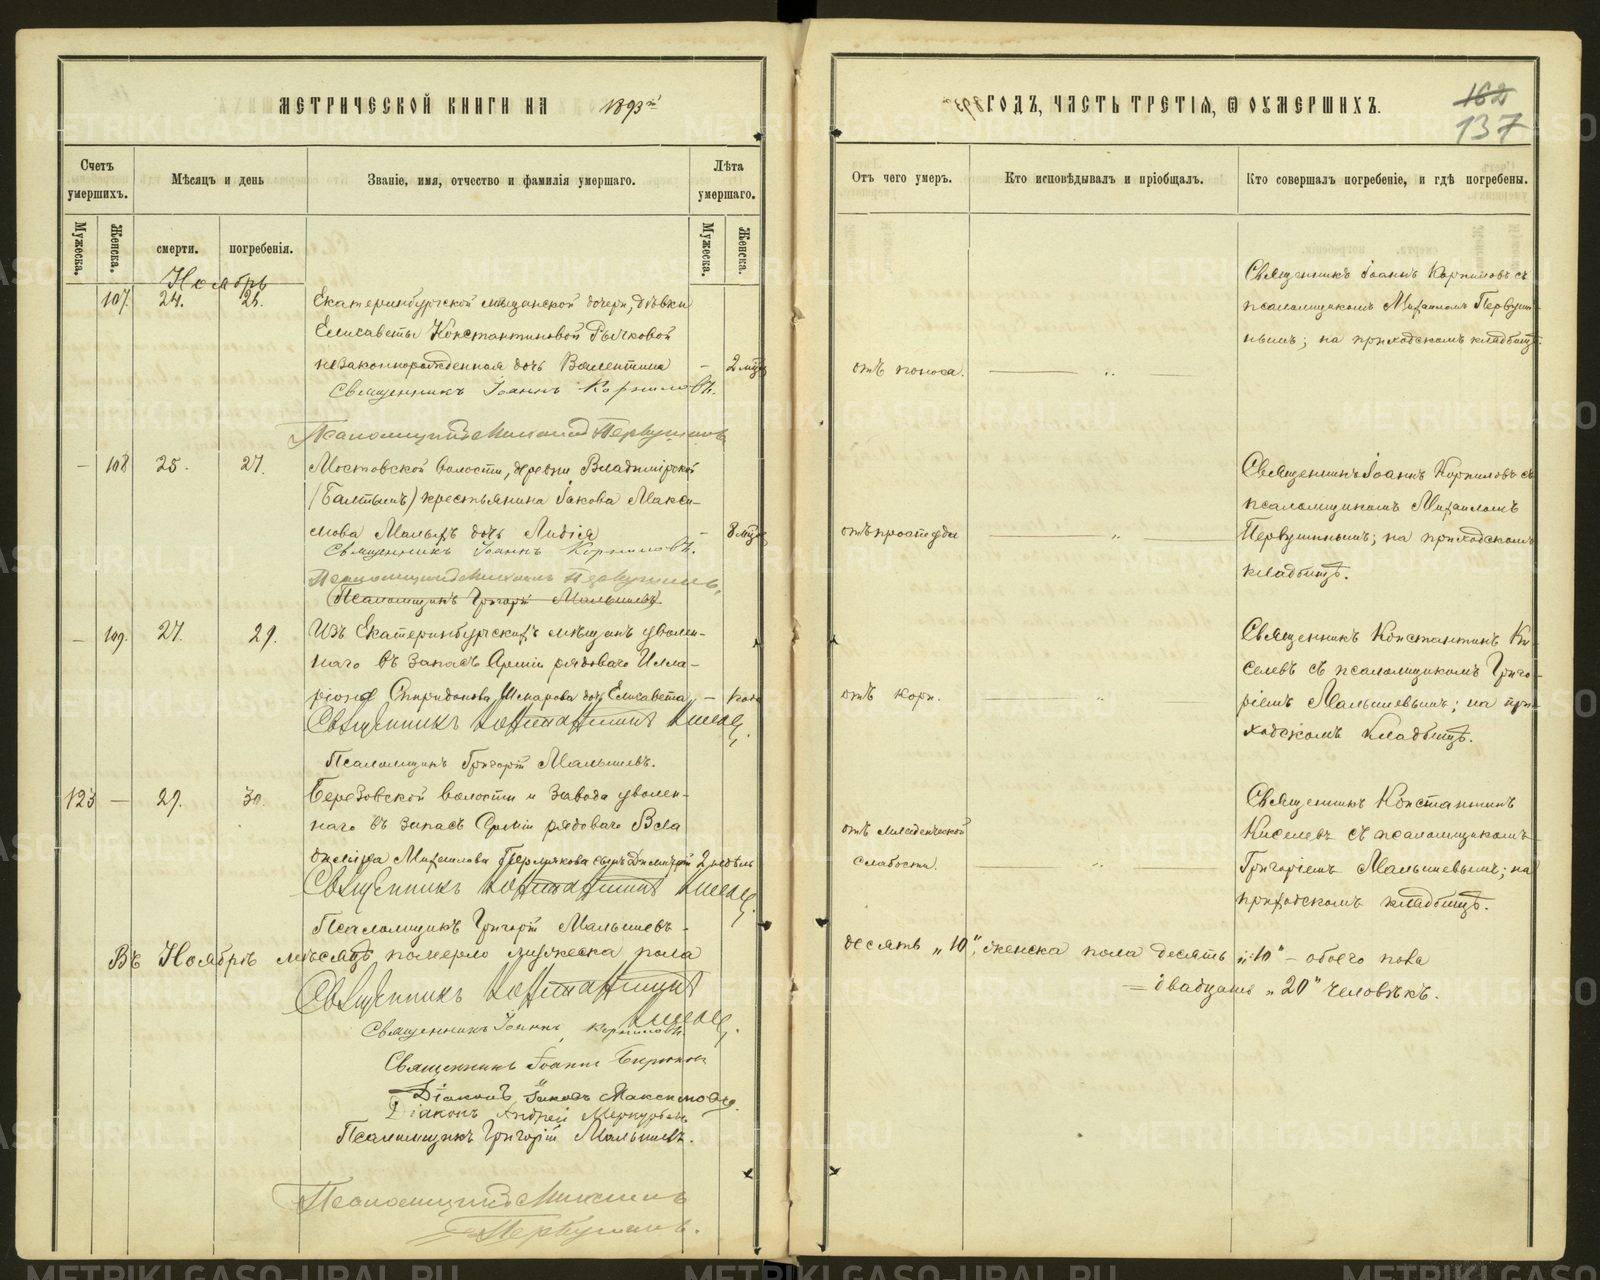 МЕТРИЧЕСКОЙ КНИГИ НА 1893й
ГОДЪ, ЧАСТЬ ТРЕТІЯ, Ѿ ОУМЕРШИХЪ.
162
137
Счетъ умершихъ.
Мѣсяцъ и день
Званіе, имя, отчество и фамилія умершаго.
Лѣта умершаго.
Отъ чего умеръ.
Кто исповѣдывалъ и пріобщалъ.
Кто совершалъ погребеніе, и гдѣ погребены.
Мужеска.
Женска.
смерти.
погребенія.
Мужеска.
Женска.
Ноябрь
107. 24. 26. Екатеринбургской мѣщанской дочери, дѣвки
Елисаветы Константиновой Рычковой
незаконнорожденная дочь Валентина - 2 мѣс
Священникъ Іоаннъ Корниловъ.
Псаломщикъ Михаилъ Первушинъ
отъ поноса. „
Священникъ Іоаннъ Корниловъ съ
псаломщикомъ Михаиломъ Первуши-
нымъ; на приходскомъ кладбищѣ.
- 108 25. 27. Мостовской волости, деревни Владимірской
(Балтымъ) крестьянина Іакова Макси-
мова Малыхъ дочь Лидія - 8 мѣс
Священникъ Іоаннъ Корниловъ.
Псаломщикъ Михаилъ Первушинъ
Псаломщикъ Григорій Малышевъ
отъ простуды „
Священникъ Іоаннъ Корниловъ съ
псаломщикомъ Михаиломъ
Первушинымъ; на приходскомъ
кладбищѣ.
- 109. 27. 29. Изъ Екатеринбургскихъ мѣщанъ уволен-
наго въ запасъ Арміи рядоваго Илла-
ріона Спиридонова дочь Елисавета -
Священникъ Константинъ Киселевъ
Псаломщикъ Григорій Малышевъ.
отъ кори. „
Священникъ Константинъ Ки-
селевъ съ псаломщикомъ Григо-
ріемъ Малышевымъ; на при-
ходскомъ кладбищѣ.
123 - 29. 30. Березовской волости и завода уволен-
наго въ запасъ Арміи рядоваго Вла
диміра Михаилова сынъ Димитрій 2 недѣль
Священникъ Константинъ Киселевъ
Псаломщикъ Григорій Малышевъ.
отъ младенческой
слабости. „
Священникъ Константинъ
Киселевъ съ псаломщикомъ
Григоріемъ Малышевымъ; на
приходскомъ кладбищѣ.
Въ Ноябрѣ мѣсяцѣ померло мужеска пола
десять „10", женска пола десять „10" - обоего пола
= двадцать „20" человѣкъ.
Священникъ Константинъ
Киселевъ
Священникъ Іоаннъ Корниловъ.
Священникъ Іоаннъ Бирюковъ
Діаконъ Іаковъ Максимовъ.
Діаконъ Андрей Меркурьевъ
Псаломщикъ Григорій Малышевъ.
Псаломщикъ Михаилъ
Первушинъ.
METRIKI.GASO-URAL.RU